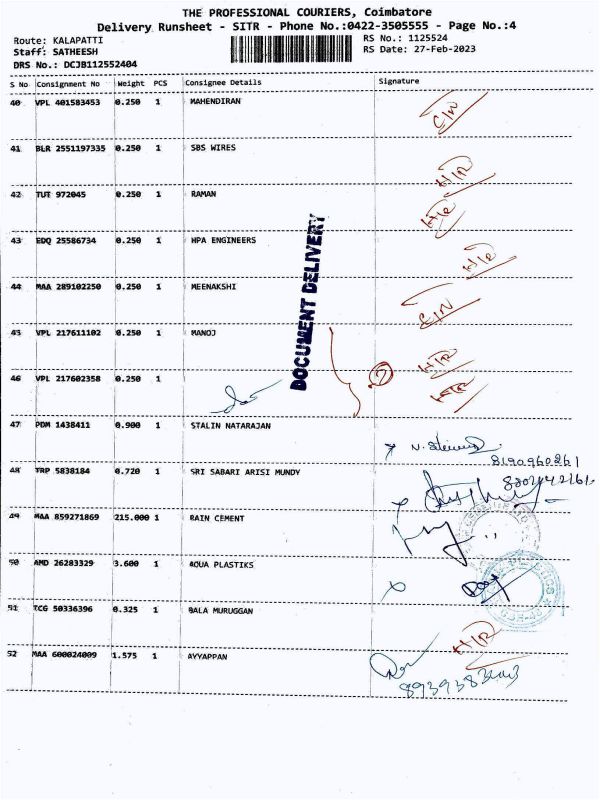 THE PROFESSIONAL COURIERS, Coimbatore
Delivery Runsheet - SITR - Phone No.:0422-3505555 - Page No.:4
Route: KALAPATTI
RS No.: 1125524
Staff: SATHEESH
RS Date: 27-Feb-2023
DRS No.: DCJB112552404
S No Consignment No Weight PCS Consignee Details Signature
40 VPL 401583453 0.250 1 MAHENDIRAN
41 BLR 2551197335 0.250 1 SBS WIRES
H/R
42 TUT 972045 0.250 1 RAMAN
H/R
43 EDQ 25586734 0.250 1 HPA ENGINEERS
H/R
DOCUMENT DELIVERY
44 MAA 289102250 0.250 1 MEENAKSHI
45 VPL 217611102 0.250 1 MANOJ
H/R
46 VPL 217602358 0.250 1
H/R
47 PDM 1438411 0.900 1 STALIN NATARAJAN
8190960261
48 TRP 5838184 0.720 1 SRI SABARI ARISI MUNDY
49 MAA 859271869 215.000 1 RAIN CEMENT
50 AMD 26283329 3.600 1 AQUA PLASTIKS
51 TCG 50336396 0.325 1 BALA MURUGGAN
H/R
52 MAA 600024009 1.575 1 AYYAPPAN